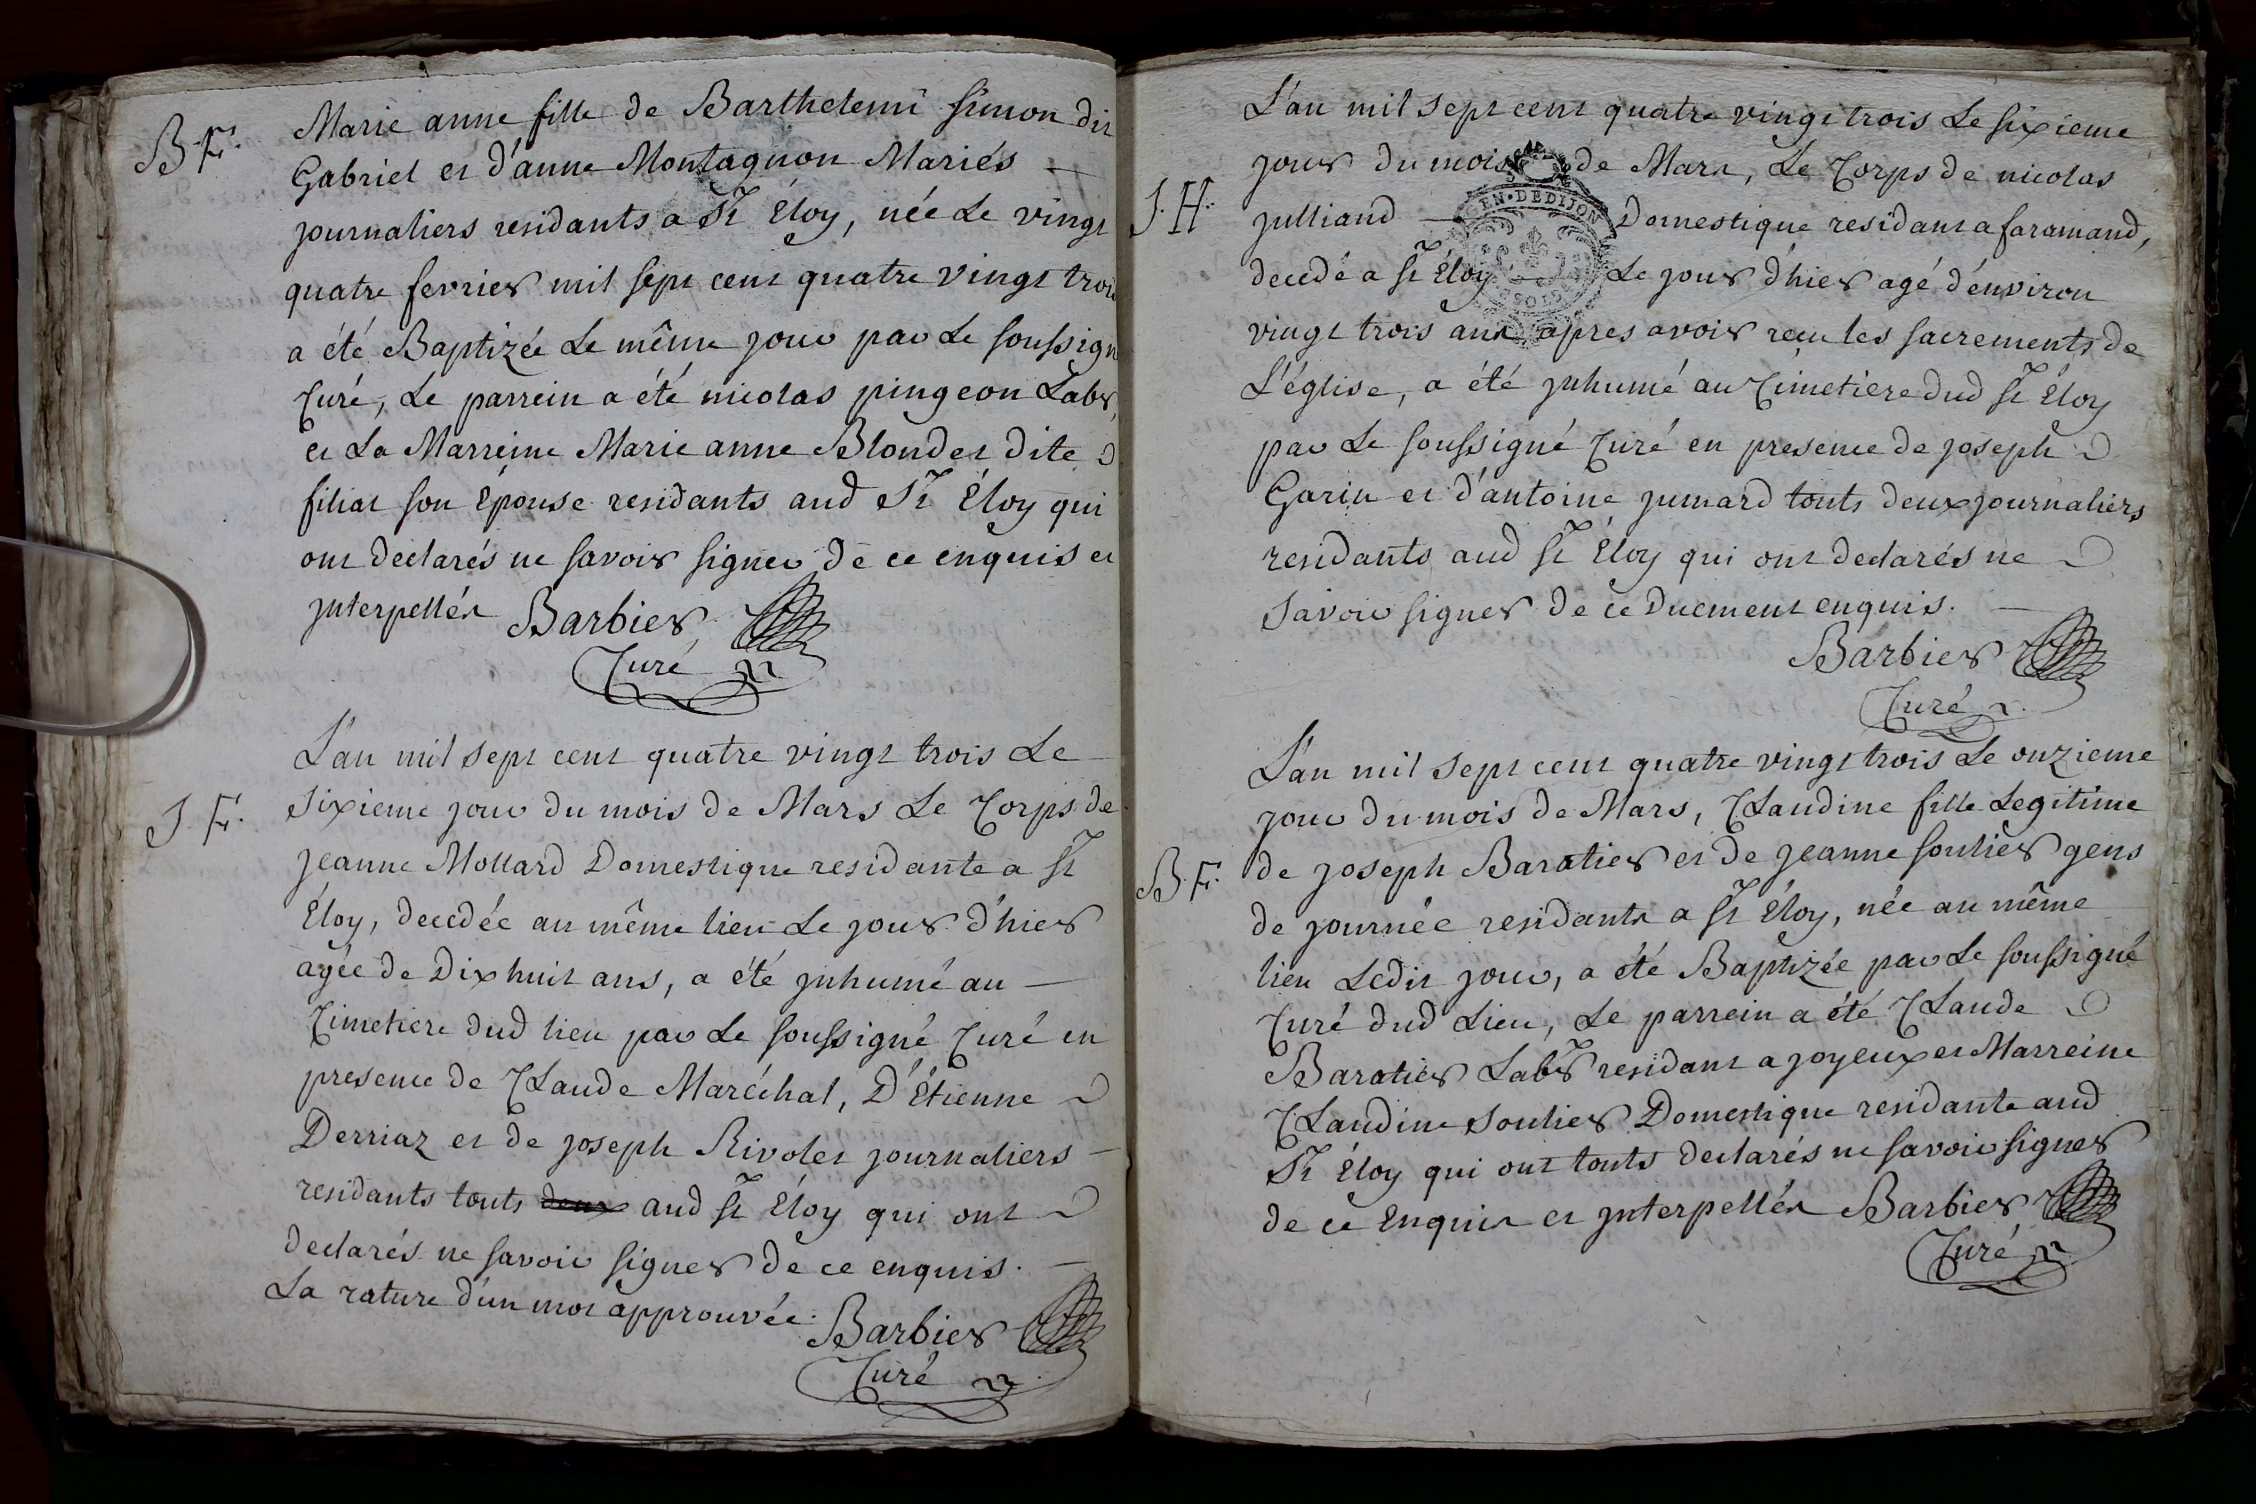 B. F.
Marie anne fille de Barthelemi simon dit
Gabriel et d'anne Montagnon Mariés
journaliers residants a St Éloy, née Le vingt
quatre fevrier mil sept cent quatre vingt trois
a été Baptizée Le même jour par Le soussigné
Curé, Le parrein a été nicolas pingeon Labr,
et La Marreine Marie anne Blondet dite
filiat son Épouse residants aud St Éloy qui
ont declarés ne savoir signer de ce enquis et
interpellés Barbier
Curé
L'an mil sept cent quatre vingt trois Le
J. F.
sixieme jour du mois de Mars Le Corps de
jeanne Mollard Domestique residante a St
Éloy, decedée au même lieu Le jour d'hier
agée de Dix huit ans, a été inhumé au
Cimetiere dud lieu par Le soussigné Curé en
presence de Claude Maréchal, D'Étienne
Derriaz et de joseph Rivolet journaliers
residants touts deux aud St Éloy qui ont
declarés ne savoir signer de ce enquis.
La rature d'un mot approuvée. Barbier
Curé
L'an mil sept cent quatre vingt trois Le sixieme
jour du mois de Mars, Le Corps de nicolas
J. H.
julliand Domestique residant a faramand,
decedé a St Éloy Le jour d'hier agé d'environ
vingt trois ans apres avoir reçu les sacrements de
L'église, a été inhumé au Cimetiere dud St Éloy
par Le soussigné Curé en presence de joseph
Garin et d'antoine jumard touts deux journaliers
residants aud St Éloy qui ont declarés ne
savoir signer de ce Duement enquis.
Barbier
Curé
EN · DE DIJON
L'an mil sept cent quatre vingt trois Le onzieme
jour du mois de Mars, Claudine fille Legitime
B. F.
de joseph Baratier et de jeanne soulier gens
de journée residants a St Éloy, née au même
lieu Ledit jour, a été Baptizée par Le soussigné
Curé dud Lieu, Le parrein a été Claude
Baratier Labr residant a joyeux et Marreine
Claudine Soulier Domestique residante aud
St Éloy qui ont touts declarés ne savoir signer
de ce Enquis et interpellés Barbier
Curé